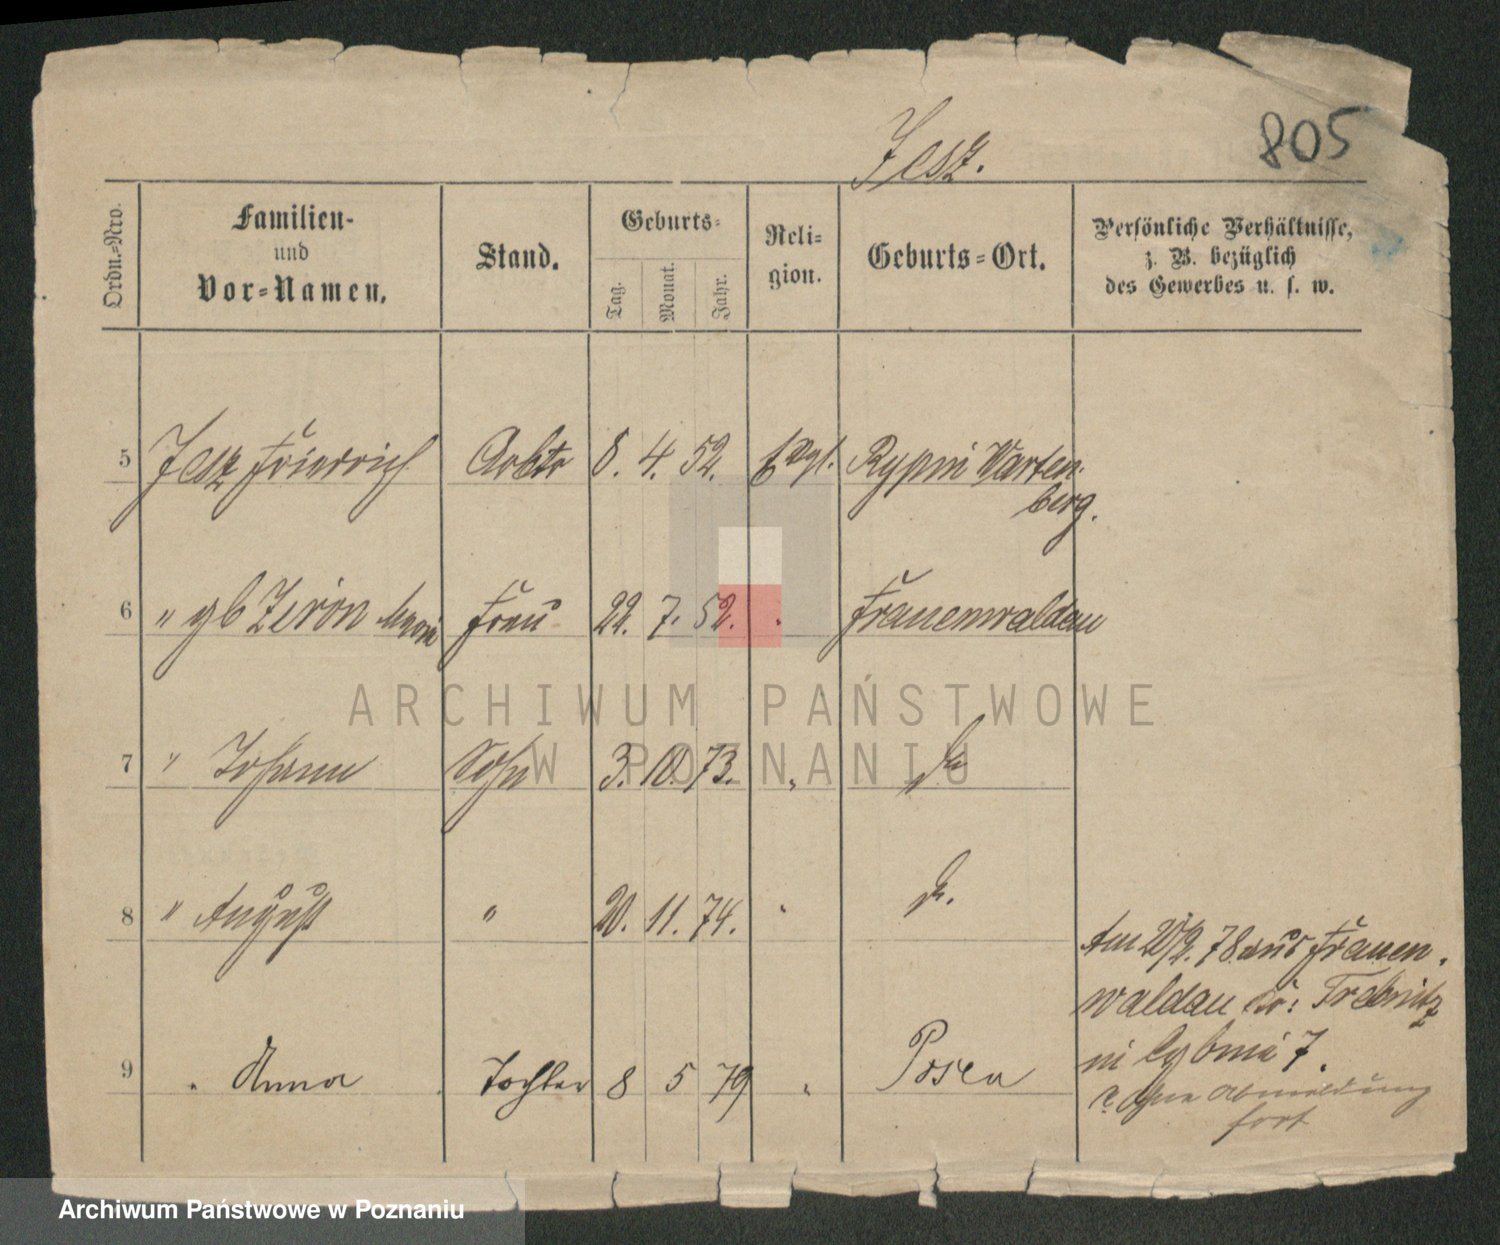 805
Jesz.
Ordn.-Nro.
Familien-
und
Vor-Namen.
Stand.
Geburts-
Tag.
Monat.
Jahr.
Reli-
gion.
Geburts-Ort.
Persönliche Verhältnisse,
z. B. bezüglich
des Gewerbes u. s. w.
5 Jesz Friedrich Arbtr 8. 4. 52. Evgl. Rypin Warten-
berg.
6 " gb Zeron Marie Frau 22. 7. 52. Frauenwaldau
7 " Johann Sohn 3. 10. 73. " do
8 " August " 20. 11. 74. " do.
9 " Anna Tochter 8 5 79 " Posen
Am 20/2. 78 aus Frauen-
waldau Kr: Trebnitz
7.
ohne Abmeldung
fort
ARCHIWUM PAŃSTWOWE
W POZNANIU
Archiwum Państwowe w Poznaniu